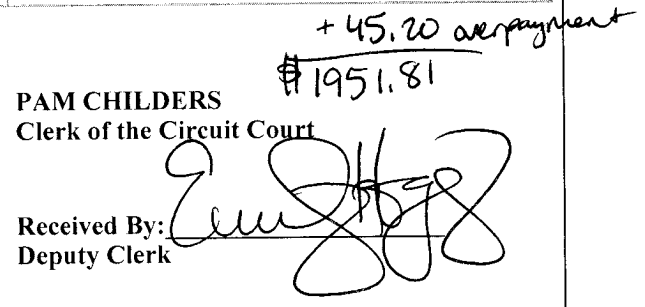 + 45.20 overpayment
$1951.81
PAM CHILDERS
Clerk of the Circuit Court
Received By:
Deputy Clerk